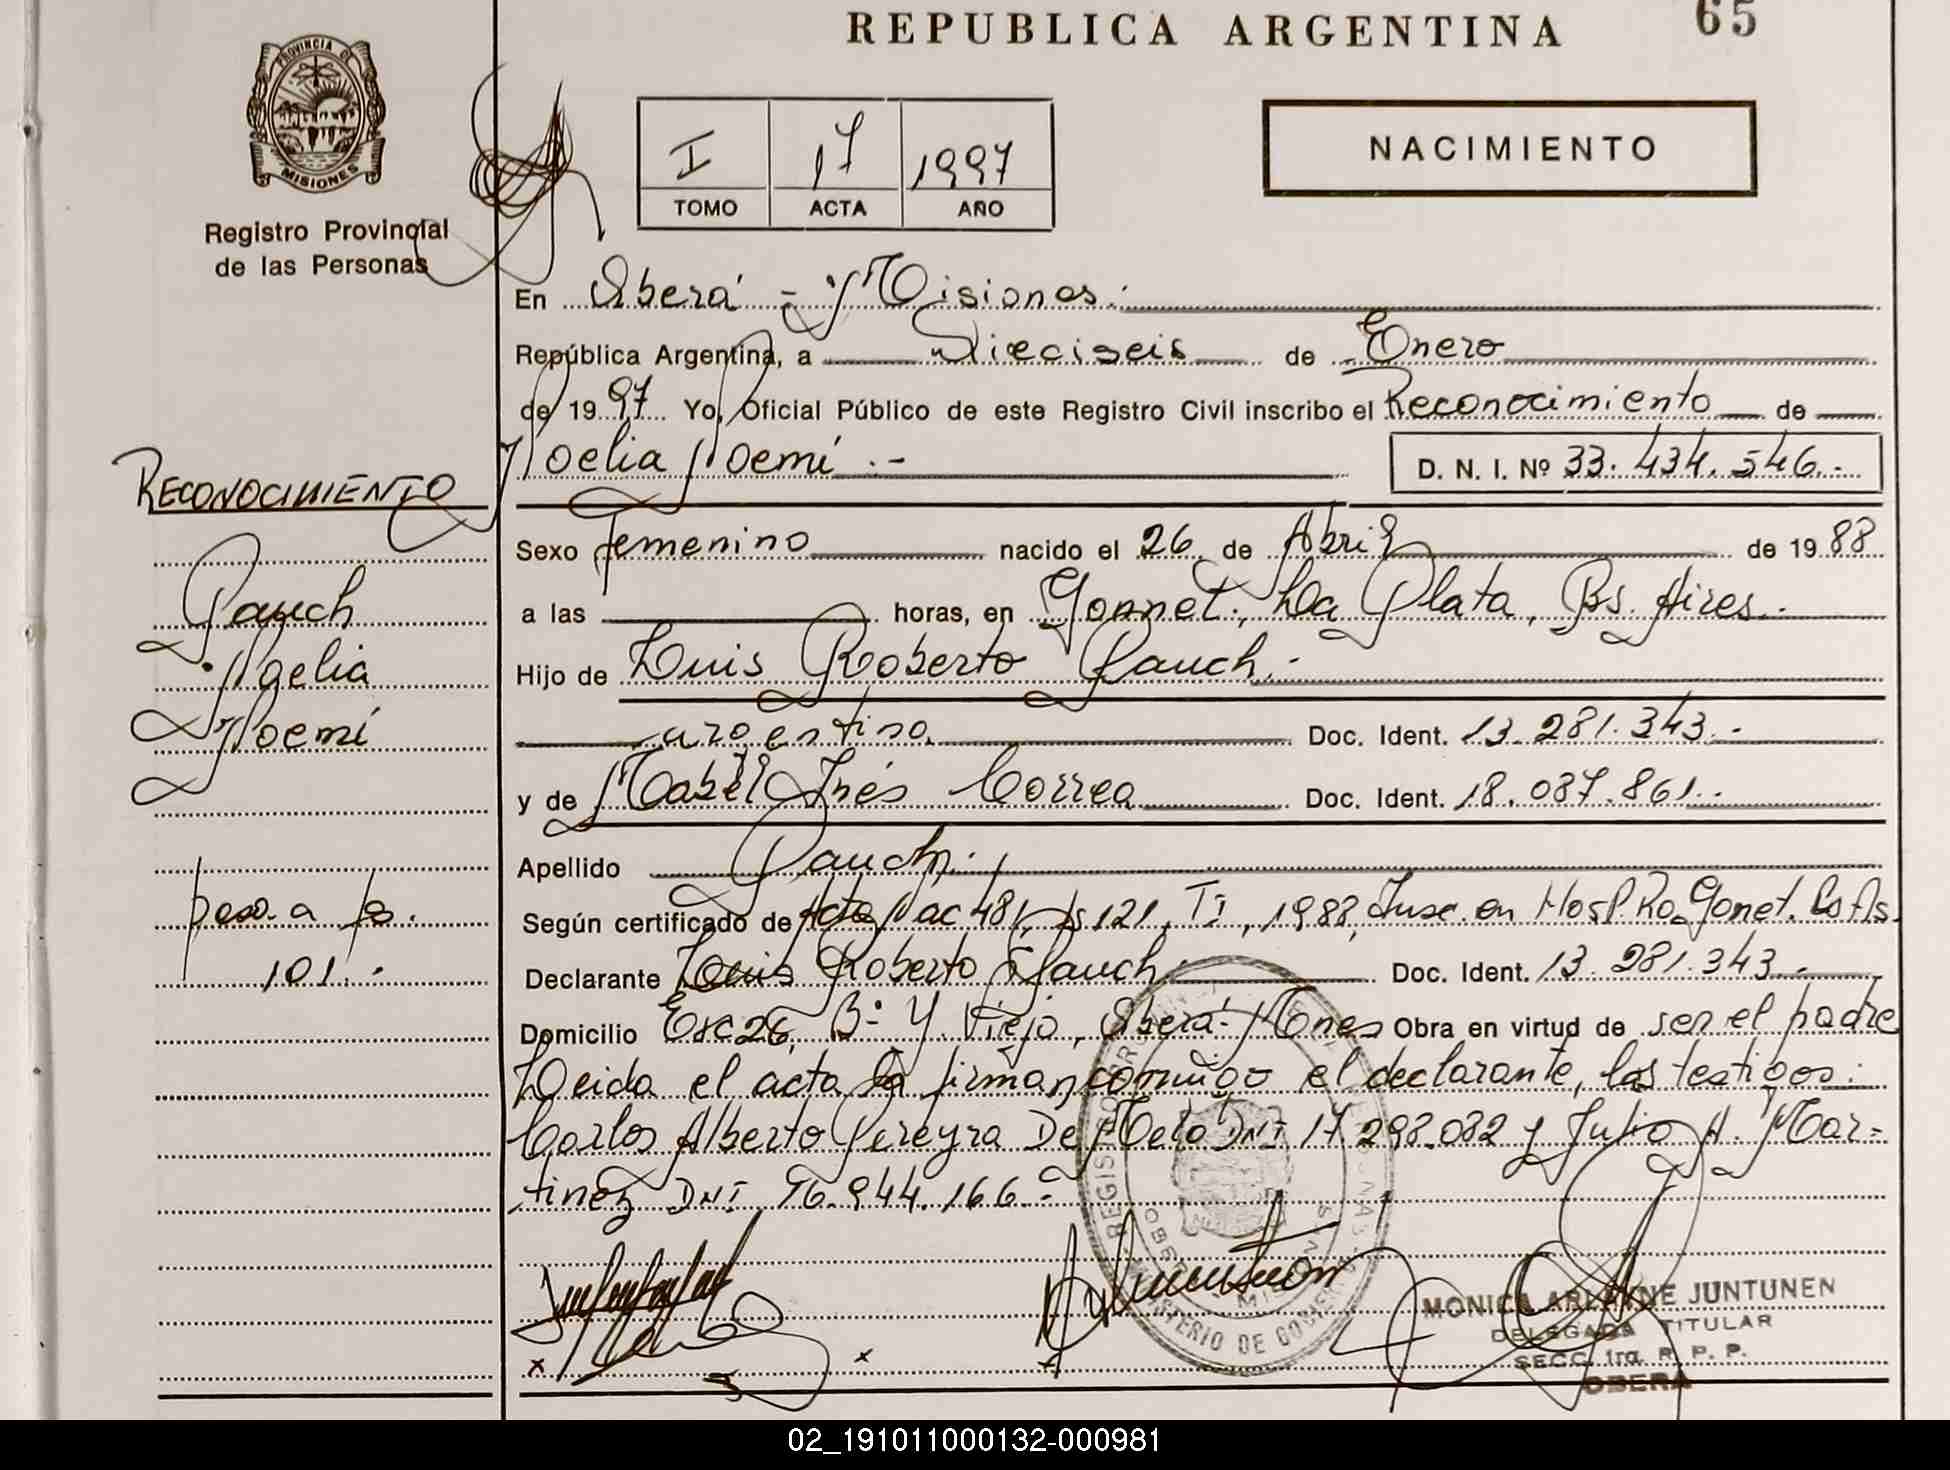 REPUBLICA ARGENTINA
65
PROVINCIA DE
MISIONES
Registro Provincial
de las Personas
I 17 1997
TOMO ACTA AÑO
NACIMIENTO
En Oberá - Misiones.-
República Argentina, a Dieciseis de Enero
de 1997 Yo, Oficial Público de este Registro Civil inscribo el Reconocimiento de
Noelia Noemí.- D. N. I. Nº 33.434.546.-
RECONOCIMIENTO
Sexo femenino nacido el 26 de Abril de 1988
a las horas, en Gonnet, La Plata, Bs. Aires.-
Rauch
Hijo de Luis Roberto Rauch.-
Noelia
argentino Doc. Ident. 13.281.343.-
Noemí
y de Mabel Inés Correa Doc. Ident. 18.037.861.-
Apellido Rauch.-
Según certificado de Acta Nac 481, fs 121, TI, 1988, Insc. en Hosp Ro. Gonet. Bs As.
pasa a fs.
101.-
Declarante Luis Roberto Rauch Doc. Ident. 13.281.343.-
Domicilio Esc 26, Bº Y. Viejo, Oberá-Mnes Obra en virtud de ser el padre
Leida el acta la firman conmigo el declarante, los testigos:
Carlos Alberto Pereyra De Melo DNI 17.298.082 y Julio A. Mar-
tinez DNI 16.944.166.-
MONICA ARLEYNE JUNTUNEN
DELEGADA TITULAR
SECC. 1ra. R. P. P.
OBERA
02_191011000132-000981